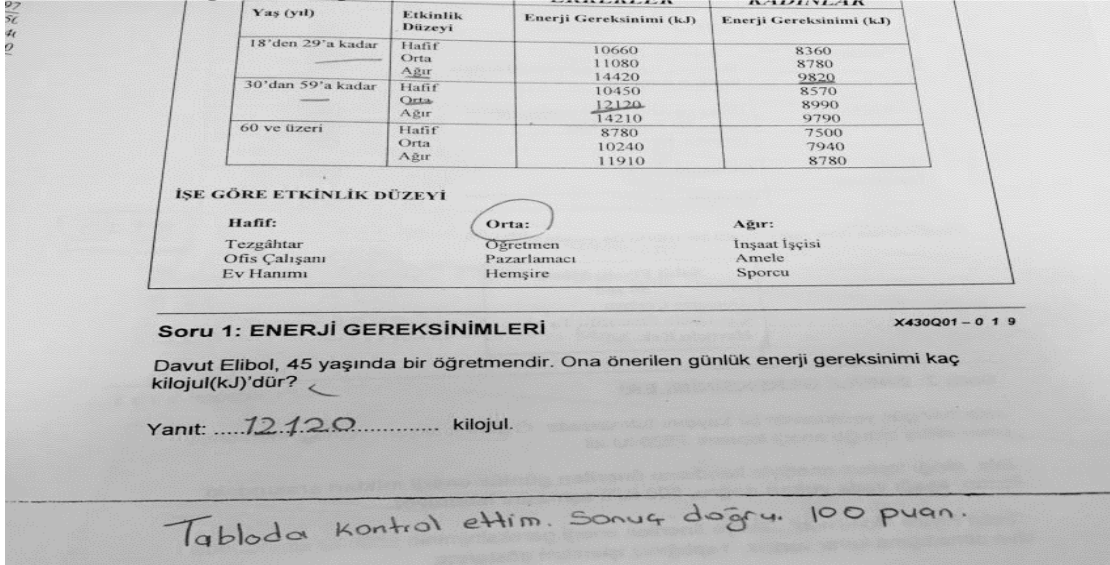 Yaş (yıl) Etkinlik Düzeyi Enerji Gereksinimi (kJ) Enerji Gereksinimi (kJ)
18'den 29'a kadar Hafif 10660 8360
Orta 11080 8780
Ağır 14420 9820
30'dan 59'a kadar Hafif 10450 8570
Orta 12120 8990
Ağır 14210 9790
60 ve üzeri Hafif 8780 7500
Orta 10240 7940
Ağır 11910 8780
İŞE GÖRE ETKİNLİK DÜZEYİ
Hafif: Orta: Ağır:
Tezgâhtar Öğretmen İnşaat İşçisi
Ofis Çalışanı Pazarlamacı Amele
Ev Hanımı Hemşire Sporcu
Soru 1: ENERJİ GEREKSİNİMLERİ X430Q01 – 0 1 9
Davut Elibol, 45 yaşında bir öğretmendir. Ona önerilen günlük enerji gereksinimi kaç
kilojul(kJ)'dür?
Yanıt: ....12.120................ kilojul.
Tabloda kontrol ettim. Sonuç doğru. 100 puan.